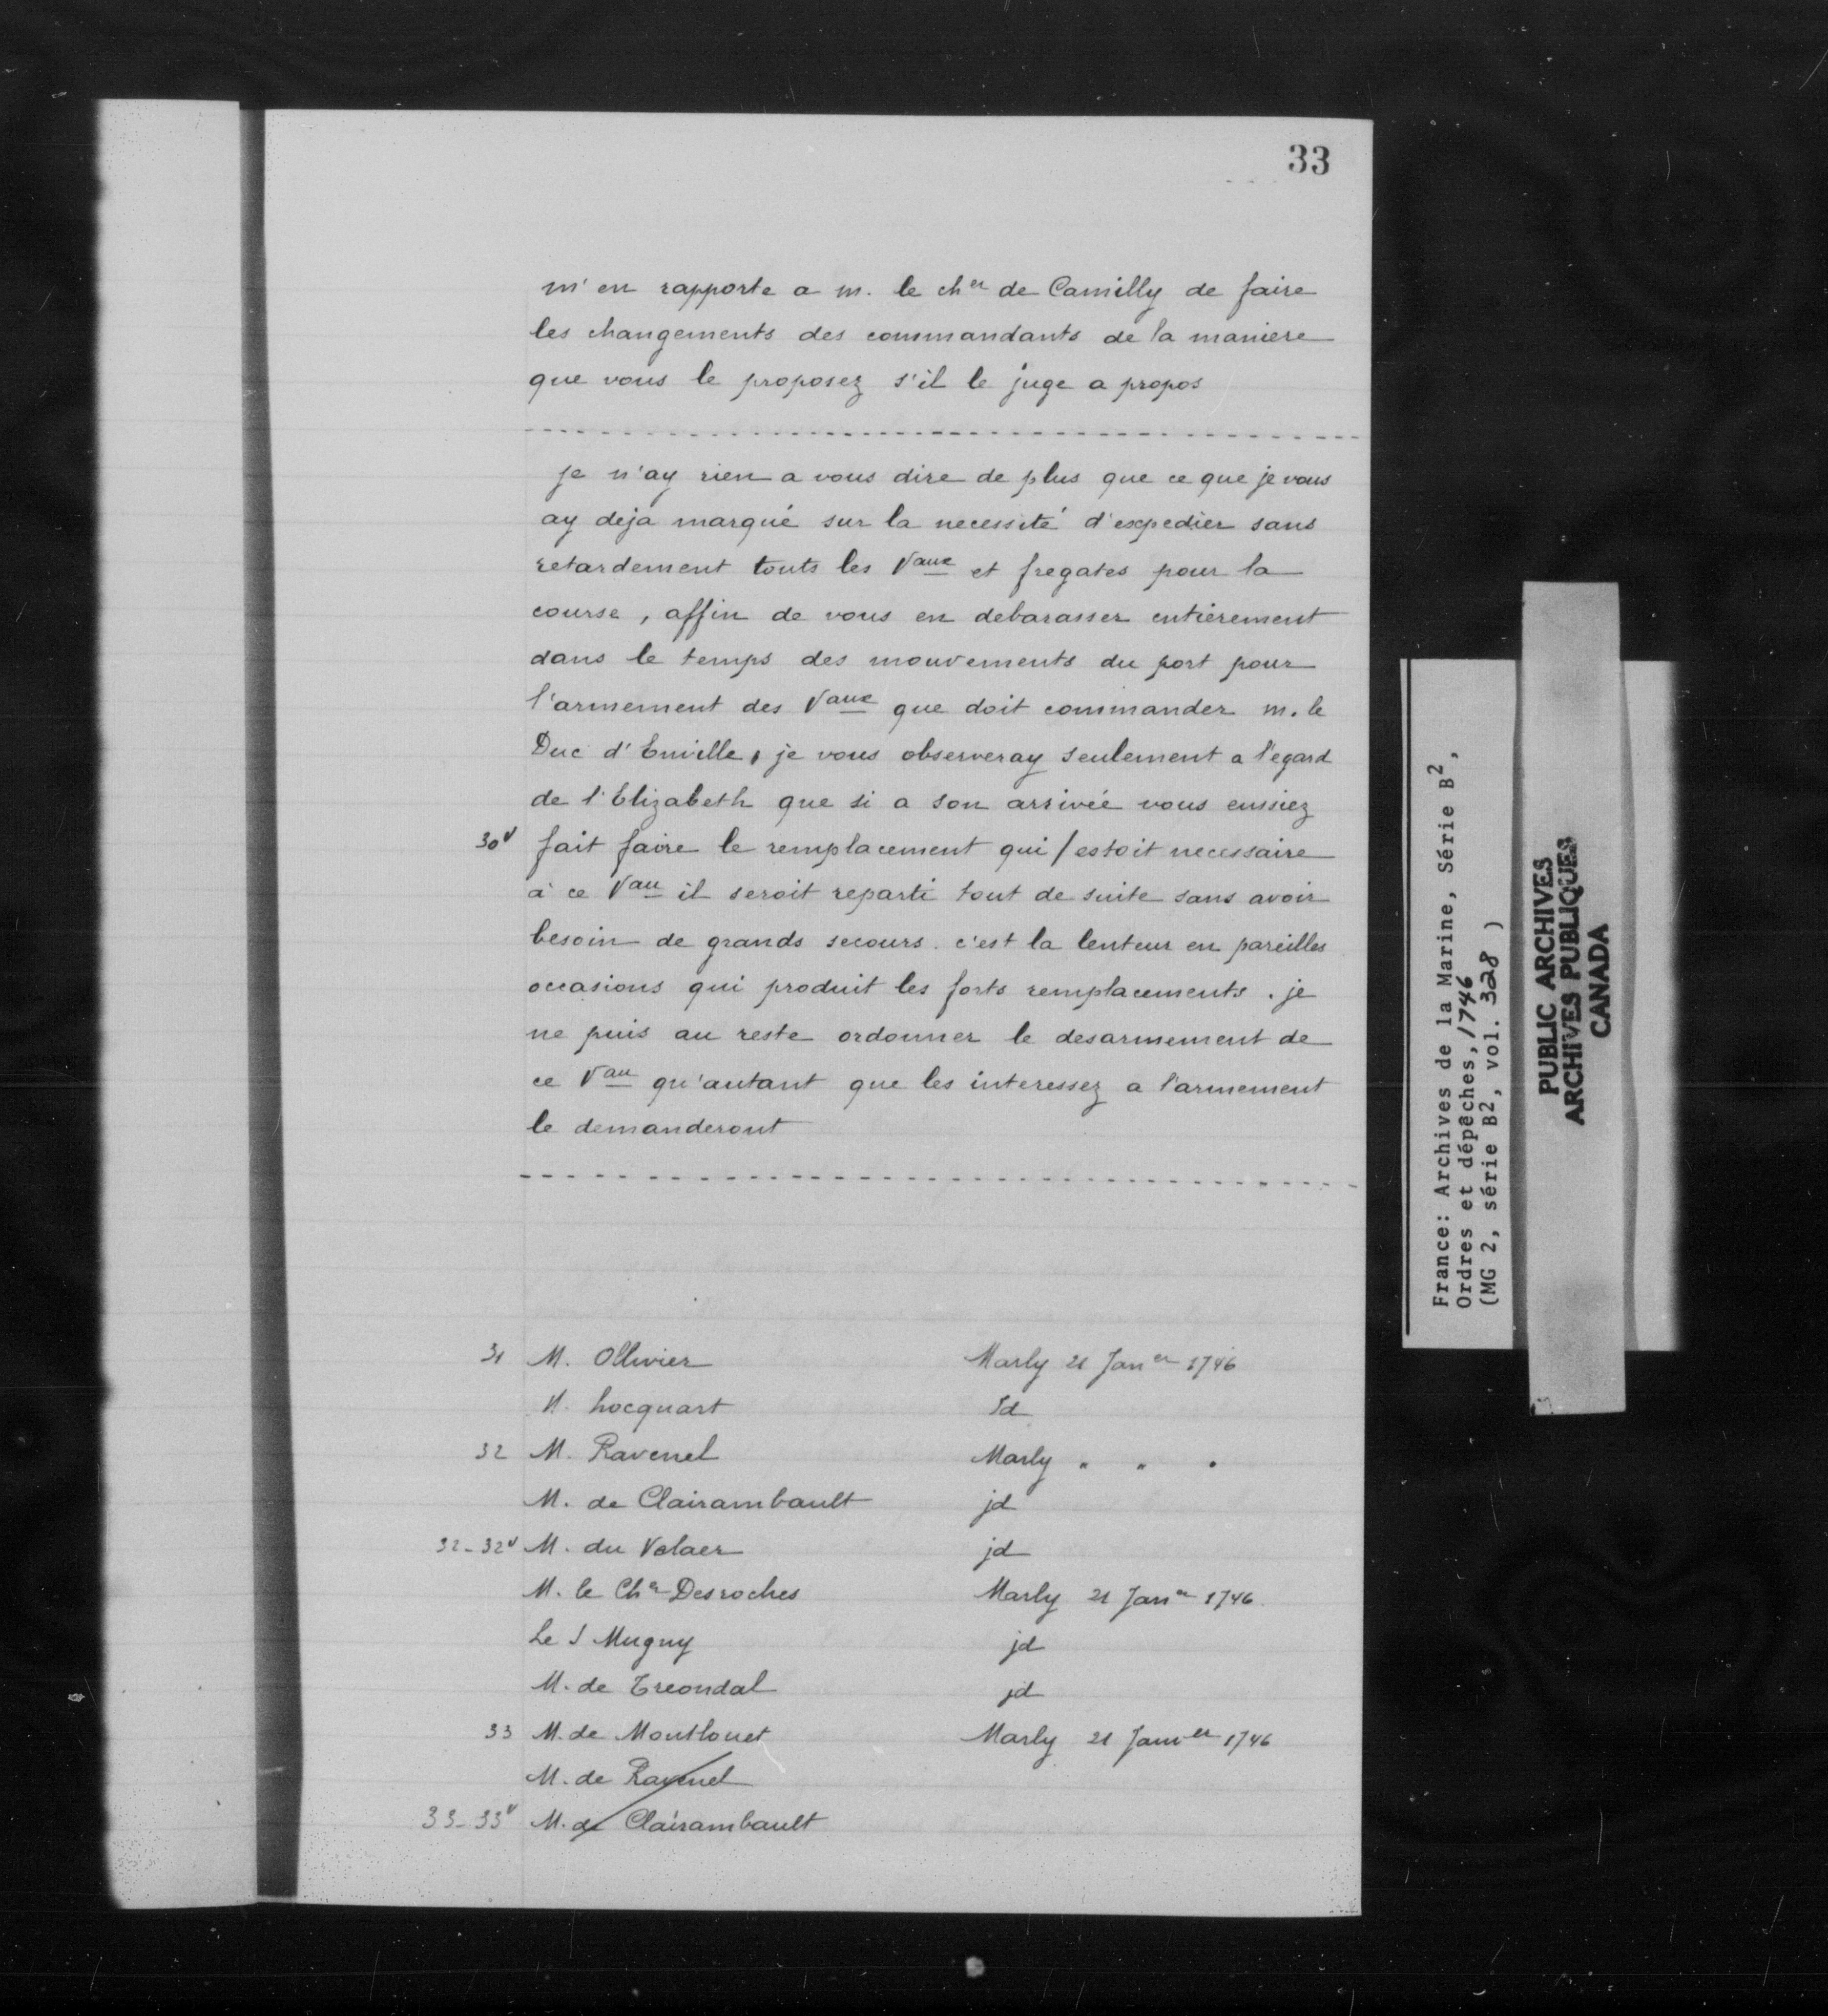 33
m'en rapporte a m. le cher de Camilly de faire
les changements des commandants de la maniere
que vous le proposez s'il le juge a propos
je n'ay rien a vous dire de plus que ce que je vous
ay deja marqué sur la necessité d'expedier sans
retardement touts les Vaux et fregates pour la
course, affin de vous en debarasser entièrement
dans le temps des mouvements du port pour
l'armement des Vaux que doit commander m. le
Duc d'Enville, je vous observeray seulement a l'egard
de l'Elizabeth que si a son arrivée vous eussiez
30v fait faire le remplacement qui / estoit necessaire
à ce Vau il seroit reparti tout de suite sans avoir
besoin de grands secours. c'est la lenteur en pareilles
occasions qui produit les forts remplacements. je
ne puis au reste ordonner le desarmement de
ce Vau qu'autant que les interessez a l'armement
le demanderont
31 M. Ollivier Marly 21 Janer 1746
M. hocquart Id
32 M. Ravenel Marly " " "
M. de Clairambault jd
32-32v M. du Velaer jd
M. le Cher Desroches Marly 21 Janer 1746
Le S Mugny jd
M. de Treondal jd
33 M. de Montlouet Marly 21 Janver 1746
M. de Ravenel
33-33v M. de Clairambault
France: Archives de la Marine, Série B2,
Ordres et dépêches, 1746
(MG 2, série B2, vol. 328 )
PUBLIC ARCHIVES
ARCHIVES PUBLIQUES
CANADA